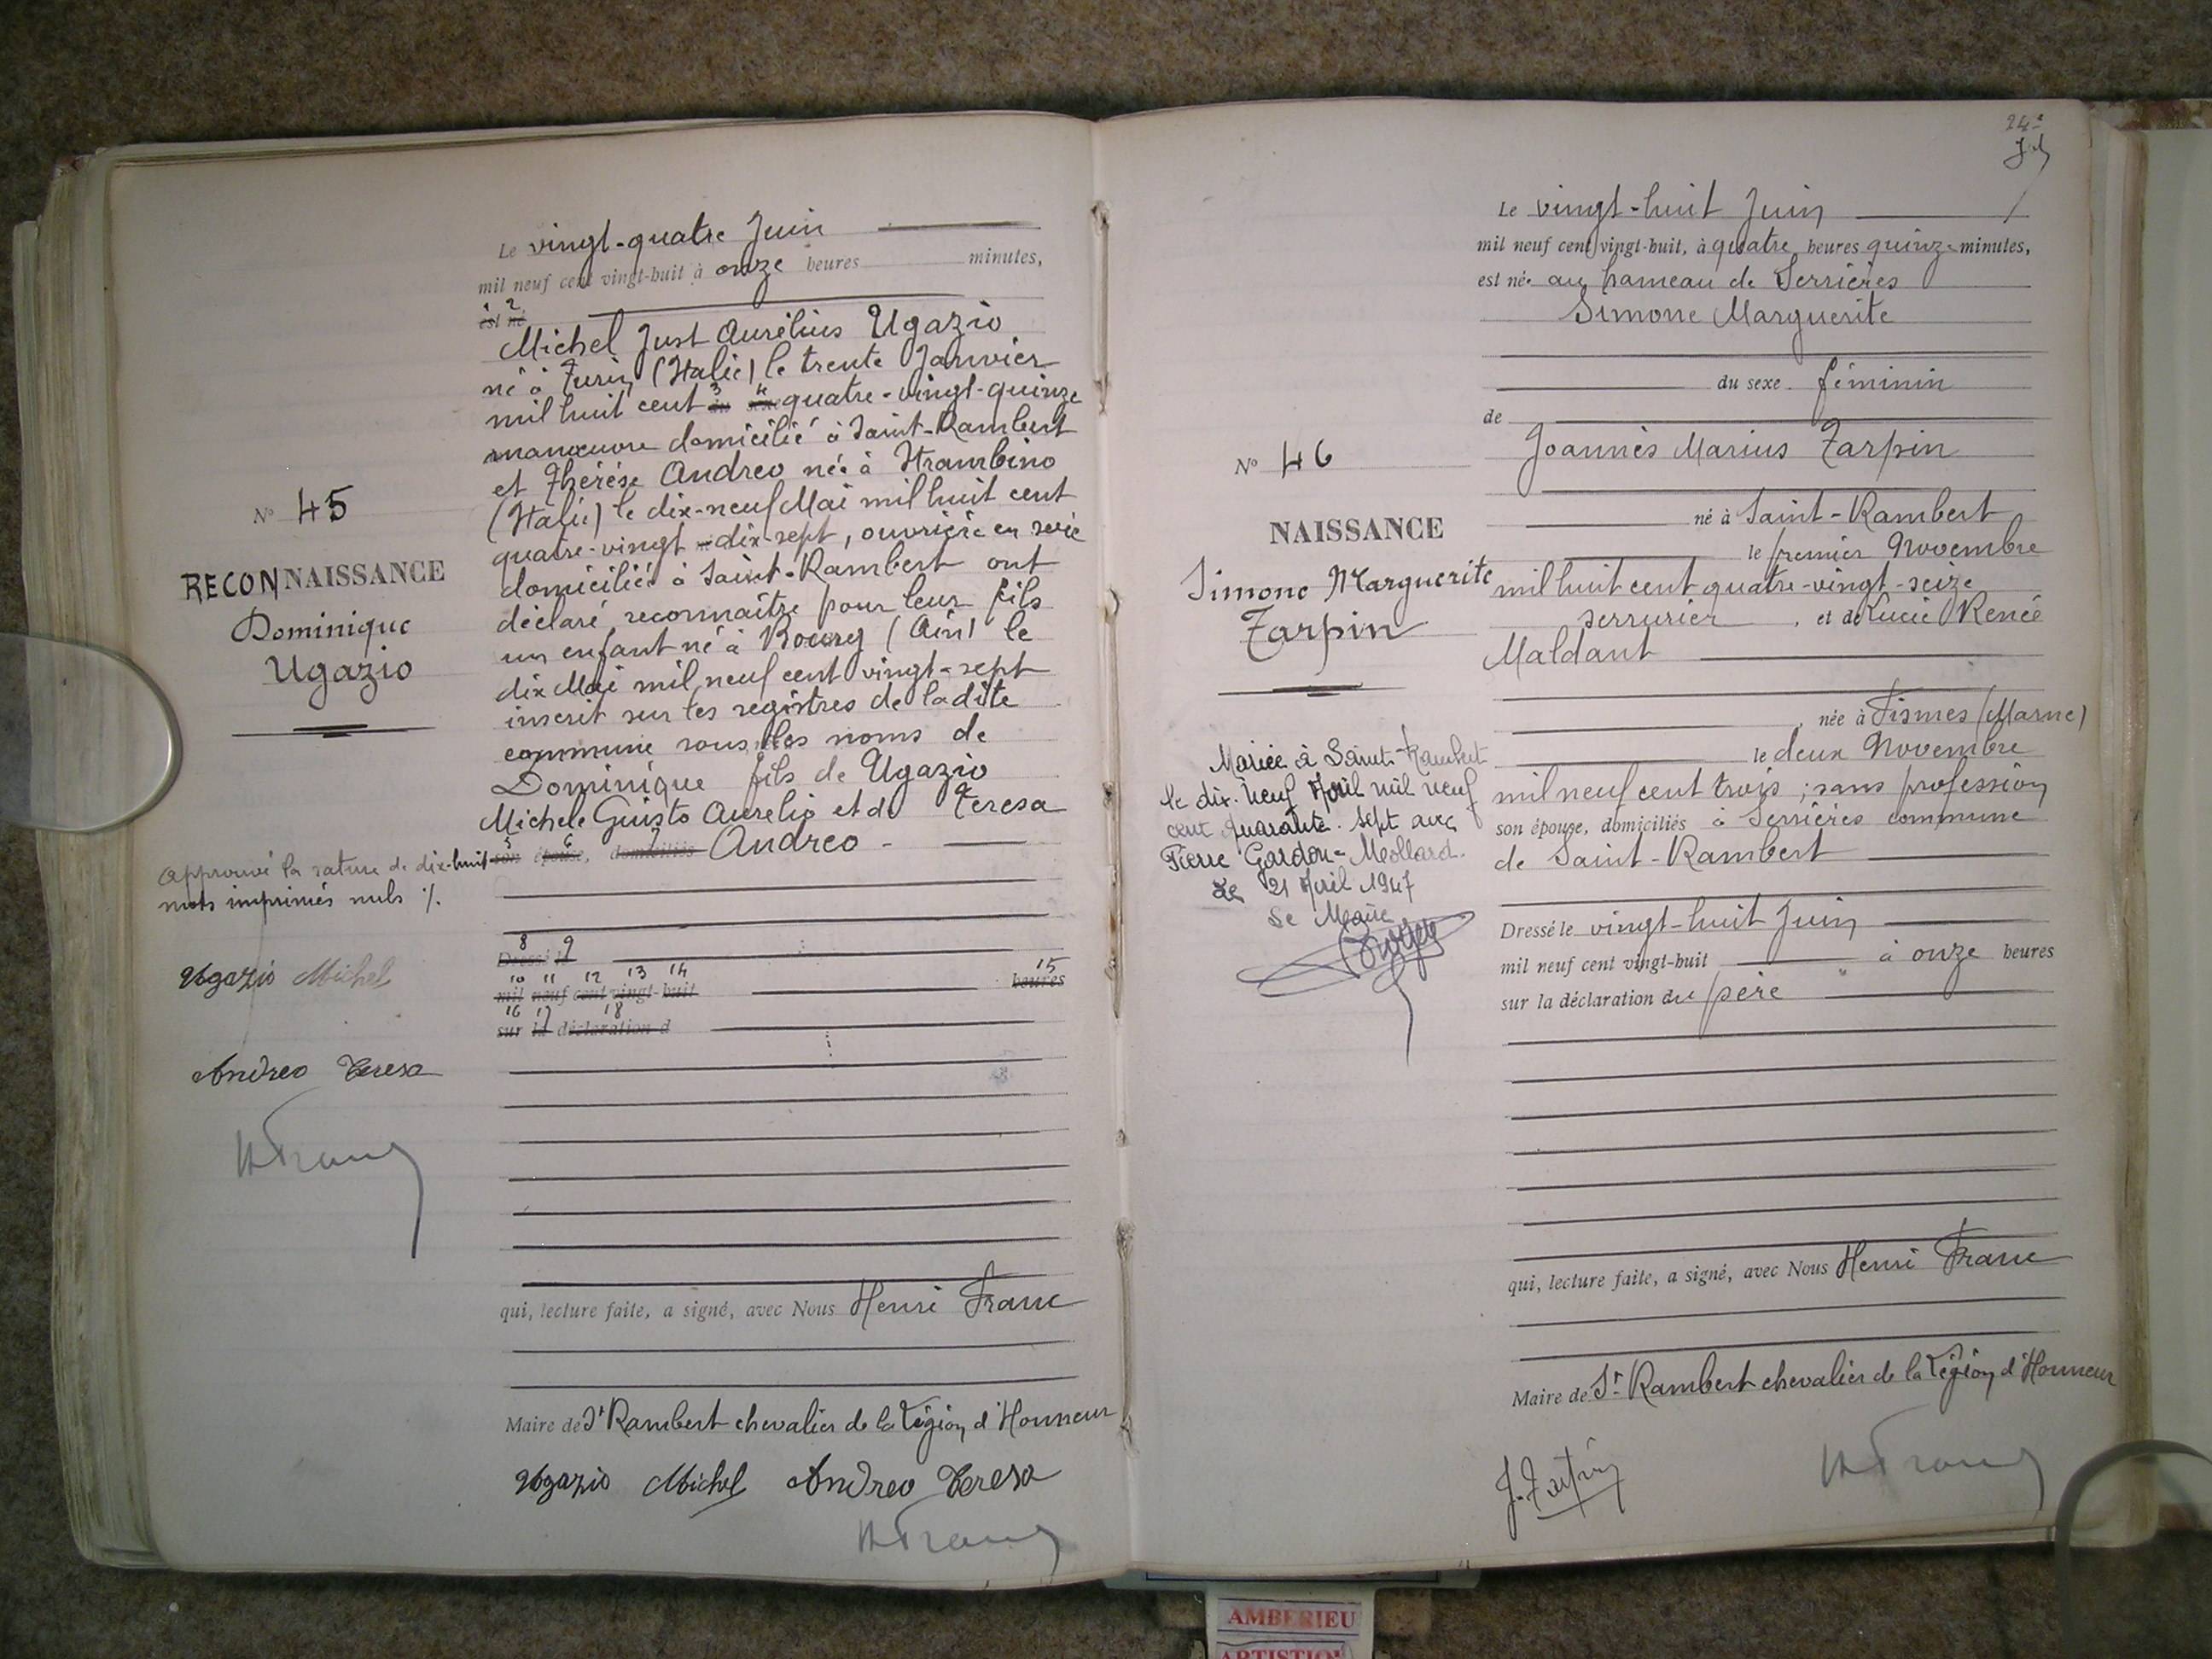 N° 45
RECONNAISSANCE
Dominique
Ugazio
Approuvé la rature de dix-huit
mots imprimés nuls ./.
Ugazio Michel
Andreo Teresa
HFranc
Le vingt-quatre Juin
mil neuf cent vingt-huit à onze heures minutes,
1 2
est né
Michel Just Aurélius Ugazio
né à Turin (Italie) le trente Janvier
mil huit cent 3 du 4 sexe quatre-vingt-quinze
manœuvre domicilié à Saint-Rambert
et Thérèse Andreo née à Strambino
(Italie) le dix-neuf Mai mil huit cent
quatre-vingt-dix-sept, ouvrière en soie
domiciliée à Saint-Rambert ont
déclaré reconnaître pour leur fils
un enfant né à Bourg (Ain) le
dix Mai mil neuf cent vingt-sept
inscrit sur les registres de ladite
commune sous les noms de
Dominique fils de Ugazio
Michele Giusto Aurelio et de Teresa
5 6 7
son épouse, domiciliés Andreo -
8 9
Dressé le
10 11 12 13 14 15
mil neuf cent vingt-huit heures
16 17 18
sur la déclaration d
qui, lecture faite, a signé, avec Nous Henri Franc
Maire de St Rambert chevalier de la Légion d'Honneur
Ugazio Michel Andreo Teresa
HFranc
24e
N° 46
NAISSANCE
Simone Marguerite
Tarpin
Mariée à Saint-Rambert
le dix-neuf Avril mil neuf
cent quarante-sept avec
Pierre Gardon-Mollard.
Le 21 Avril 1947
Le Maire
Le vingt-huit Juin
mil neuf cent vingt-huit, à quatre heures quinze minutes,
est née au hameau de Serrières
Simone Marguerite
du sexe féminin
de
Joannès Marius Tarpin
né à Saint-Rambert
le premier Novembre
mil huit cent quatre-vingt-seize
serrurier, et de Lucie Renée
Maldant
, née à Fismes (Marne)
le deux Novembre
mil neuf cent trois ; sans profession
son épouse, domiciliés à Serrières commune
de Saint-Rambert
Dressé le vingt-huit Juin
mil neuf cent vingt-huit à onze heures
sur la déclaration du père
qui, lecture faite, a signé, avec Nous Henri Franc
Maire de St Rambert chevalier de la Légion d'Honneur
J. Tarpin HFranc
AMBERIEU